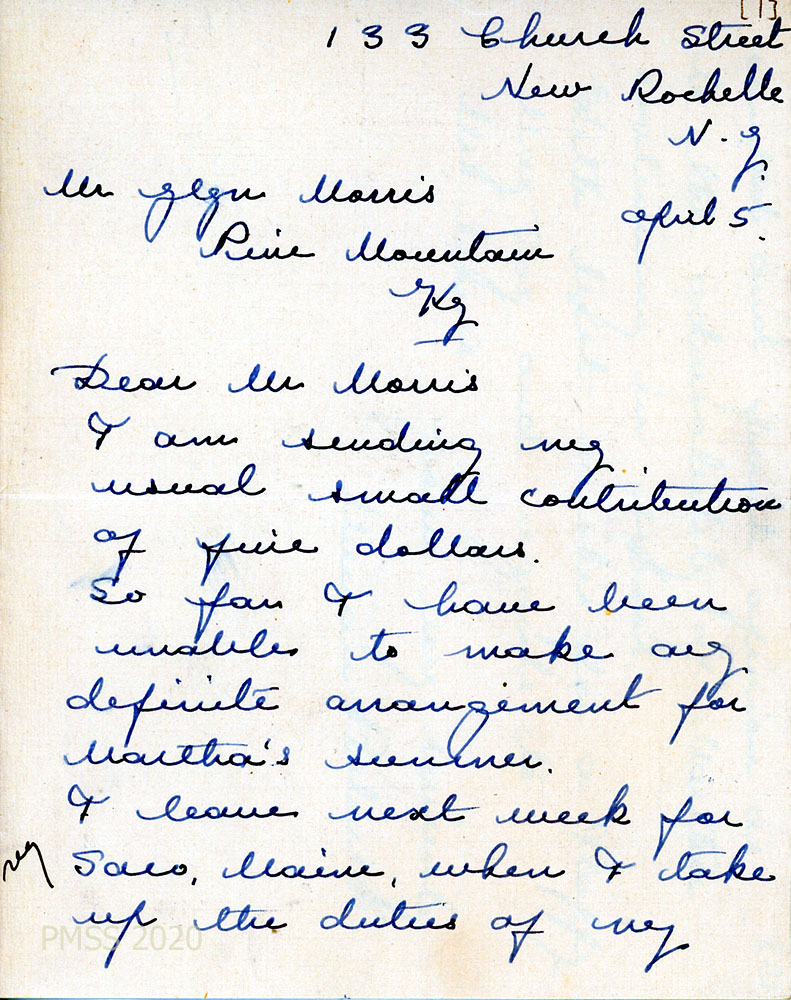 [1]
133 Church Street
New Rochelle
N.Y.
April 5.
Mr Glyn Morris
Pine Mountain
Ky
Dear Mr Morris
I am sending my
usual small contribution
of five dollars.
So far I have been
unable to make any
definite arrangement for
Martha's summer.
I leave next week for
Saco, Maine, when I take
up the duties of my
PMSS 2020